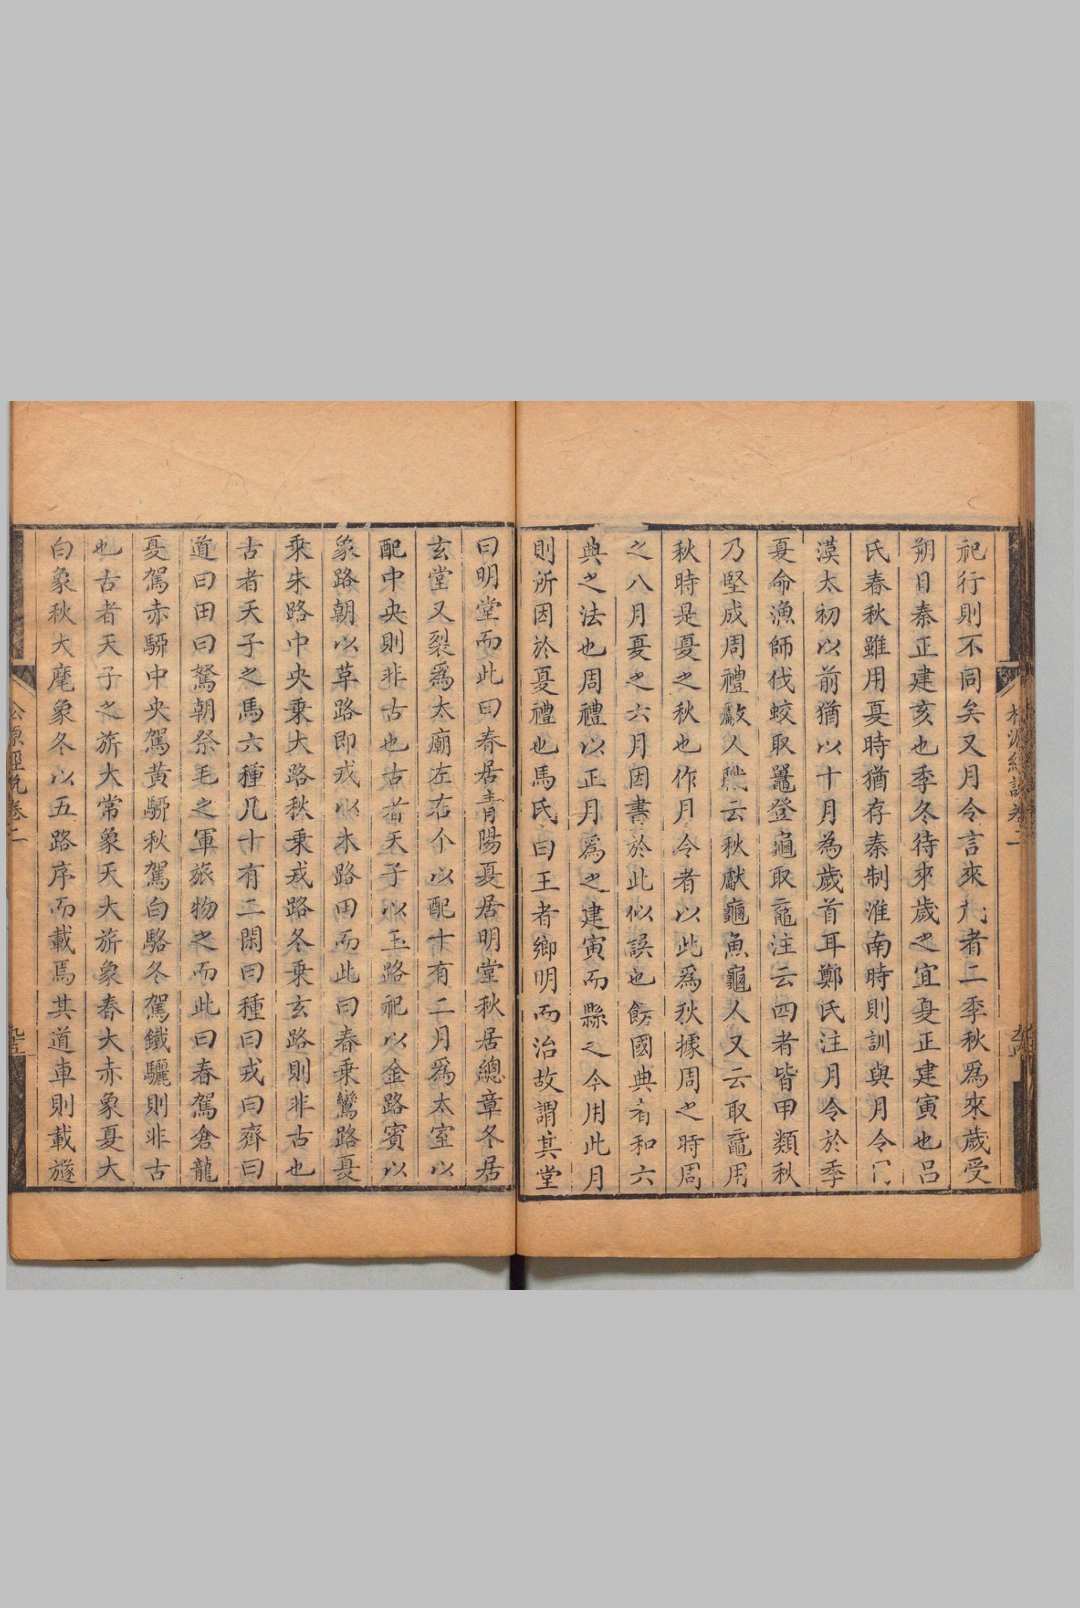 祀行則不同矣又月令言來歲者二季秋爲來歲受
朔日秦正建亥也季冬待來歲之宜夏正建寅也呂
氏春秋雖用夏時猶存秦制淮南時則訓與月令同
漢太初以前猶以十月為歲首耳鄭氏注月令於季
夏命漁師伐蛟取鼉登龜取黿注云四者皆甲類秋
乃堅成周禮𢿢人職云秋獻龜魚龜人又云取龜用
秋時是夏之秋也作月令者以此爲秋據周之時周
之八月夏之六月因書於此似誤也餝國典者和六
典之法也周禮以正月爲之建寅而縣之今用此月
則所因於夏禮也馬氏曰王者鄉明而治故謂其堂
曰明堂而此曰春居青陽夏居明堂秋居總章冬居
玄堂又裂爲太廟左右个以配十有二月爲太室以
配中央則非古也古者天子以玉路祀以金路賓以
象路朝以革路即戎以木路田而此曰春乗鸞路夏
乘朱路中央乗大路秋乗戎路冬乗玄路則非古也
古者天子之馬六種凡十有二閑曰種曰戎曰齊曰
道曰田曰駑朝祭毛之軍旅物之而此曰春駕倉龍
夏駕赤駵中央駕黃駵秋駕白駱冬駕鐵驪則非古
也古者天子之旂大常象天大旂象春大赤象夏大
白象秋大麾象冬以五路序而載焉其道車則載旞
公原經說卷二